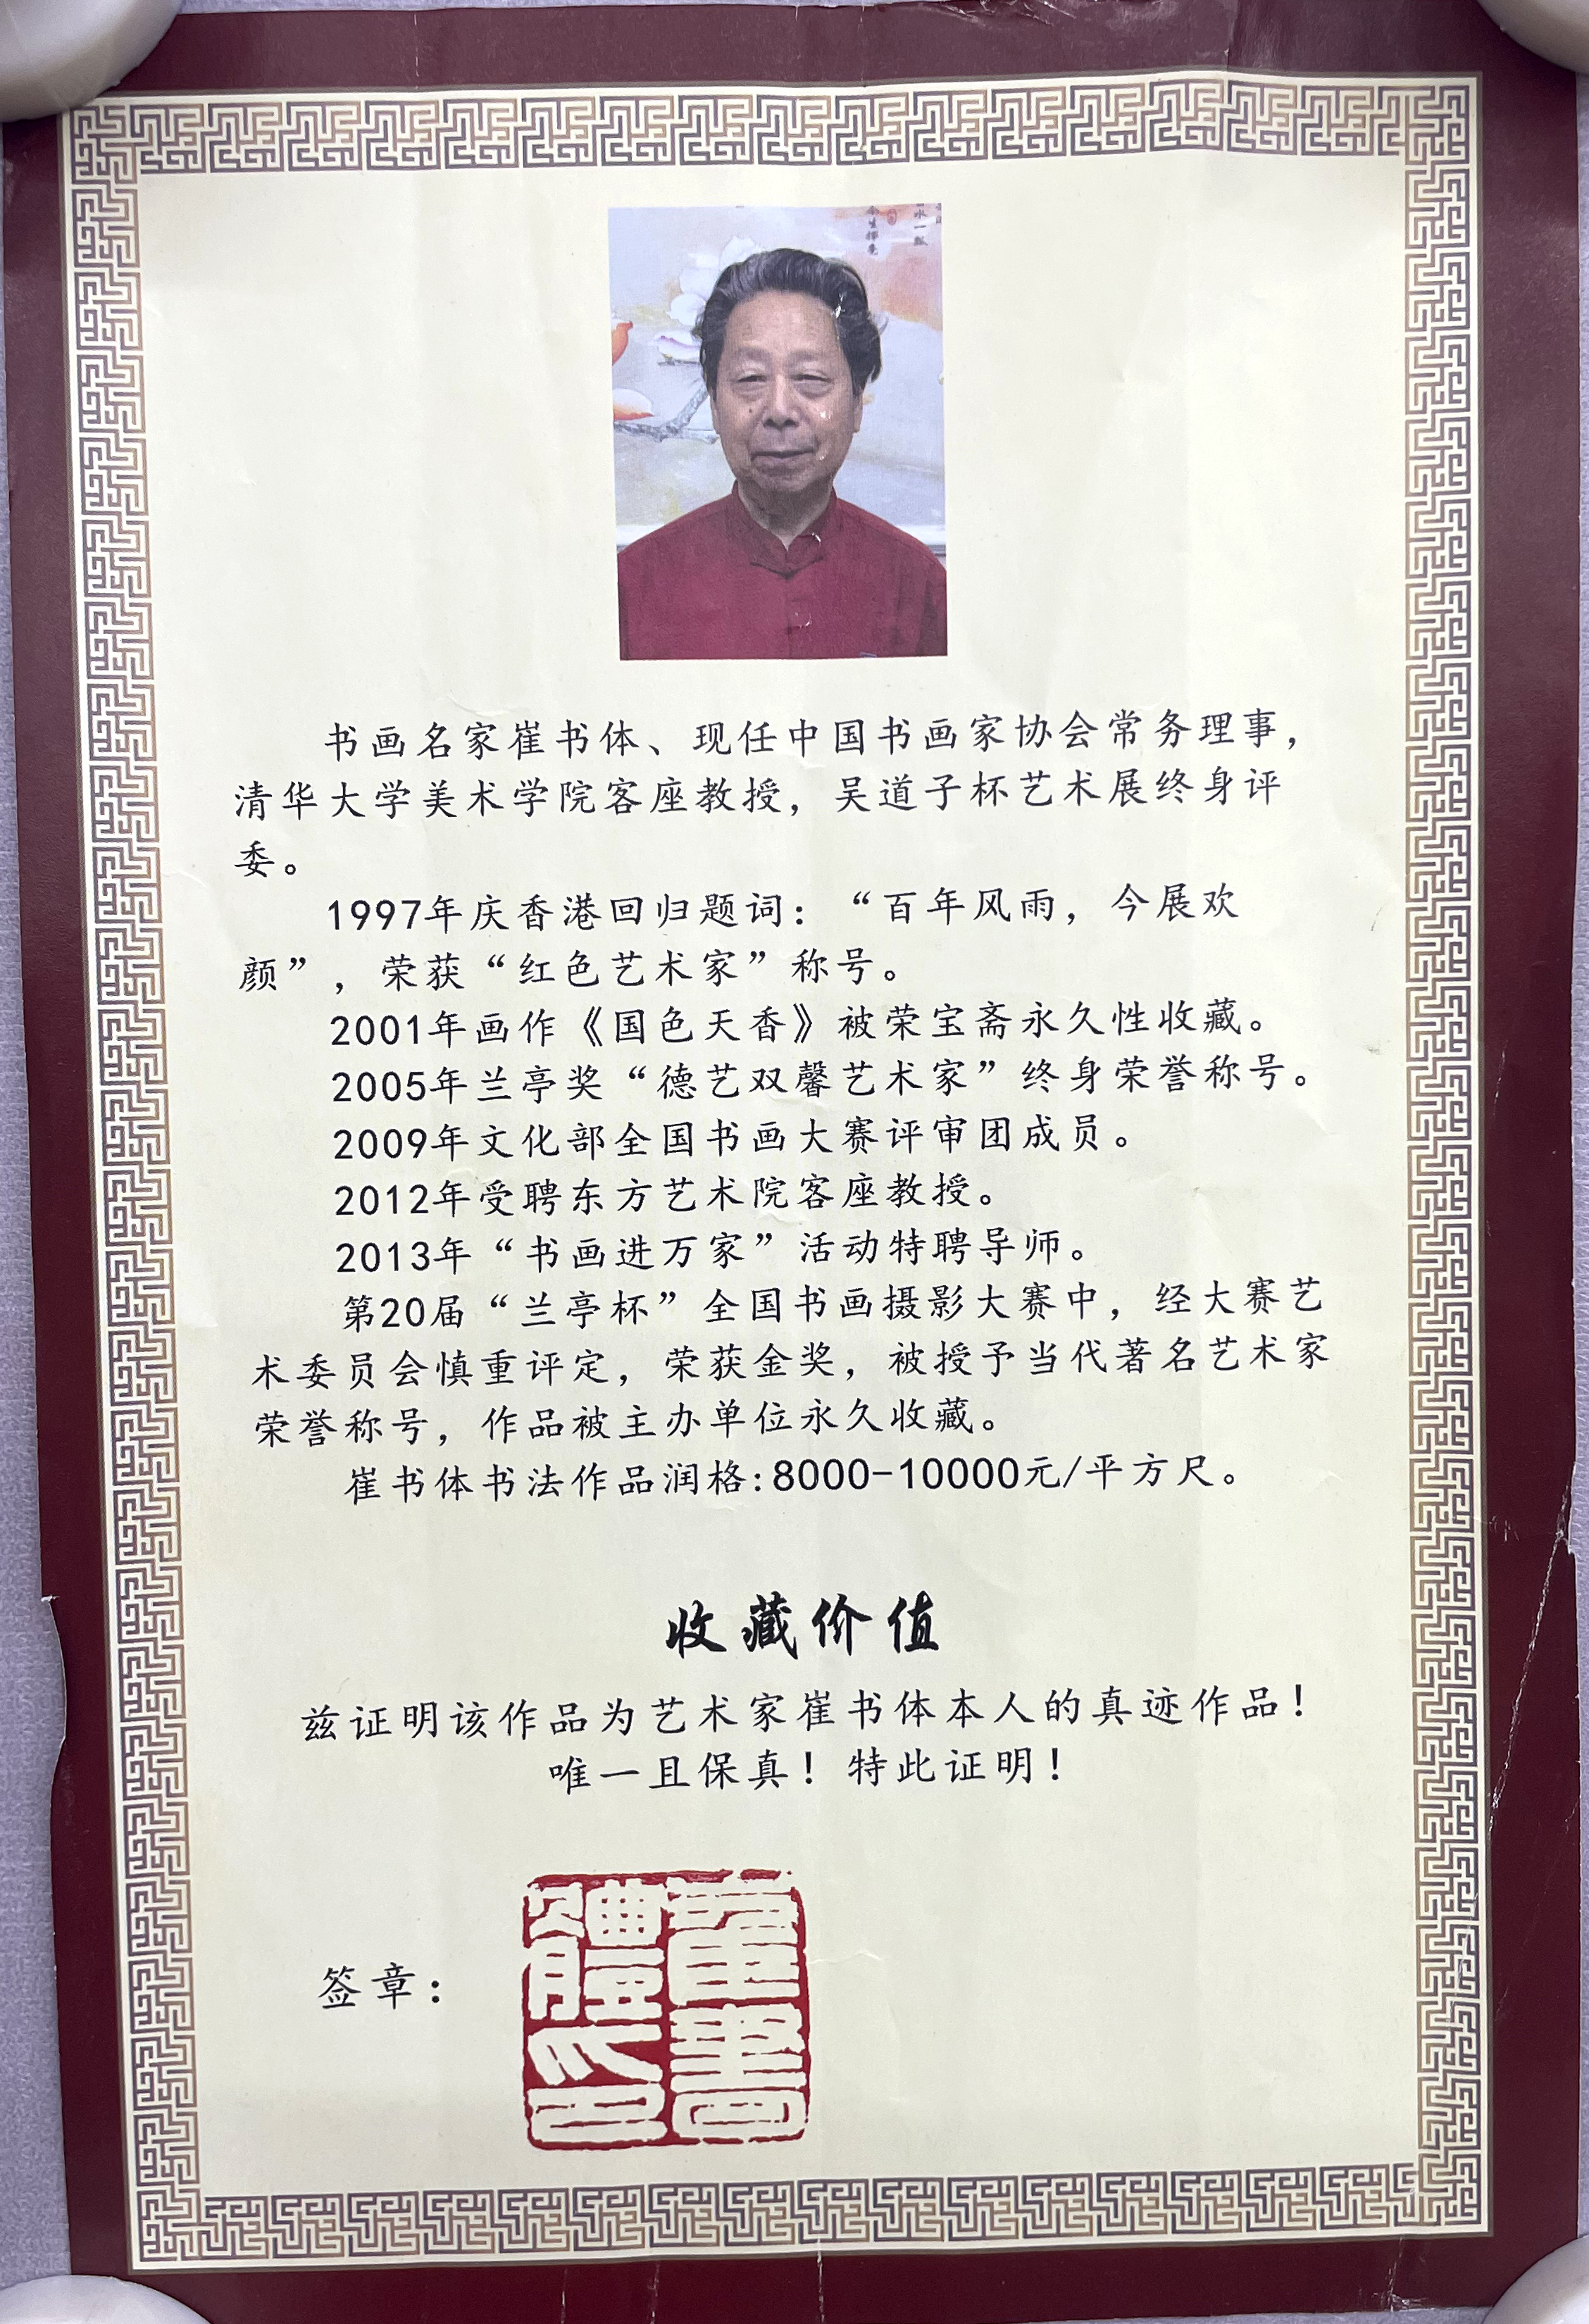 书画名家崔书体、现任中国书画家协会常务理事，
清华大学美术学院客座教授，吴道子杯艺术展终身评
委。
1997年庆香港回归题词：“百年风雨，今展欢
颜”，荣获“红色艺术家”称号。
2001年画作《国色天香》被荣宝斋永久性收藏。
2005年兰亭奖“德艺双馨艺术家”终身荣誉称号。
2009年文化部全国书画大赛评审团成员。
2012年受聘东方艺术院客座教授。
2013年“书画进万家”活动特聘导师。
第20届“兰亭杯”全国书画摄影大赛中，经大赛艺
术委员会慎重评定，荣获金奖，被授予当代著名艺术家
荣誉称号，作品被主办单位永久收藏。
崔书体书法作品润格:8000-10000元/平方尺。
收藏价值
兹证明该作品为艺术家崔书体本人的真迹作品！
唯一且保真！特此证明！
签章：
崔書
體印